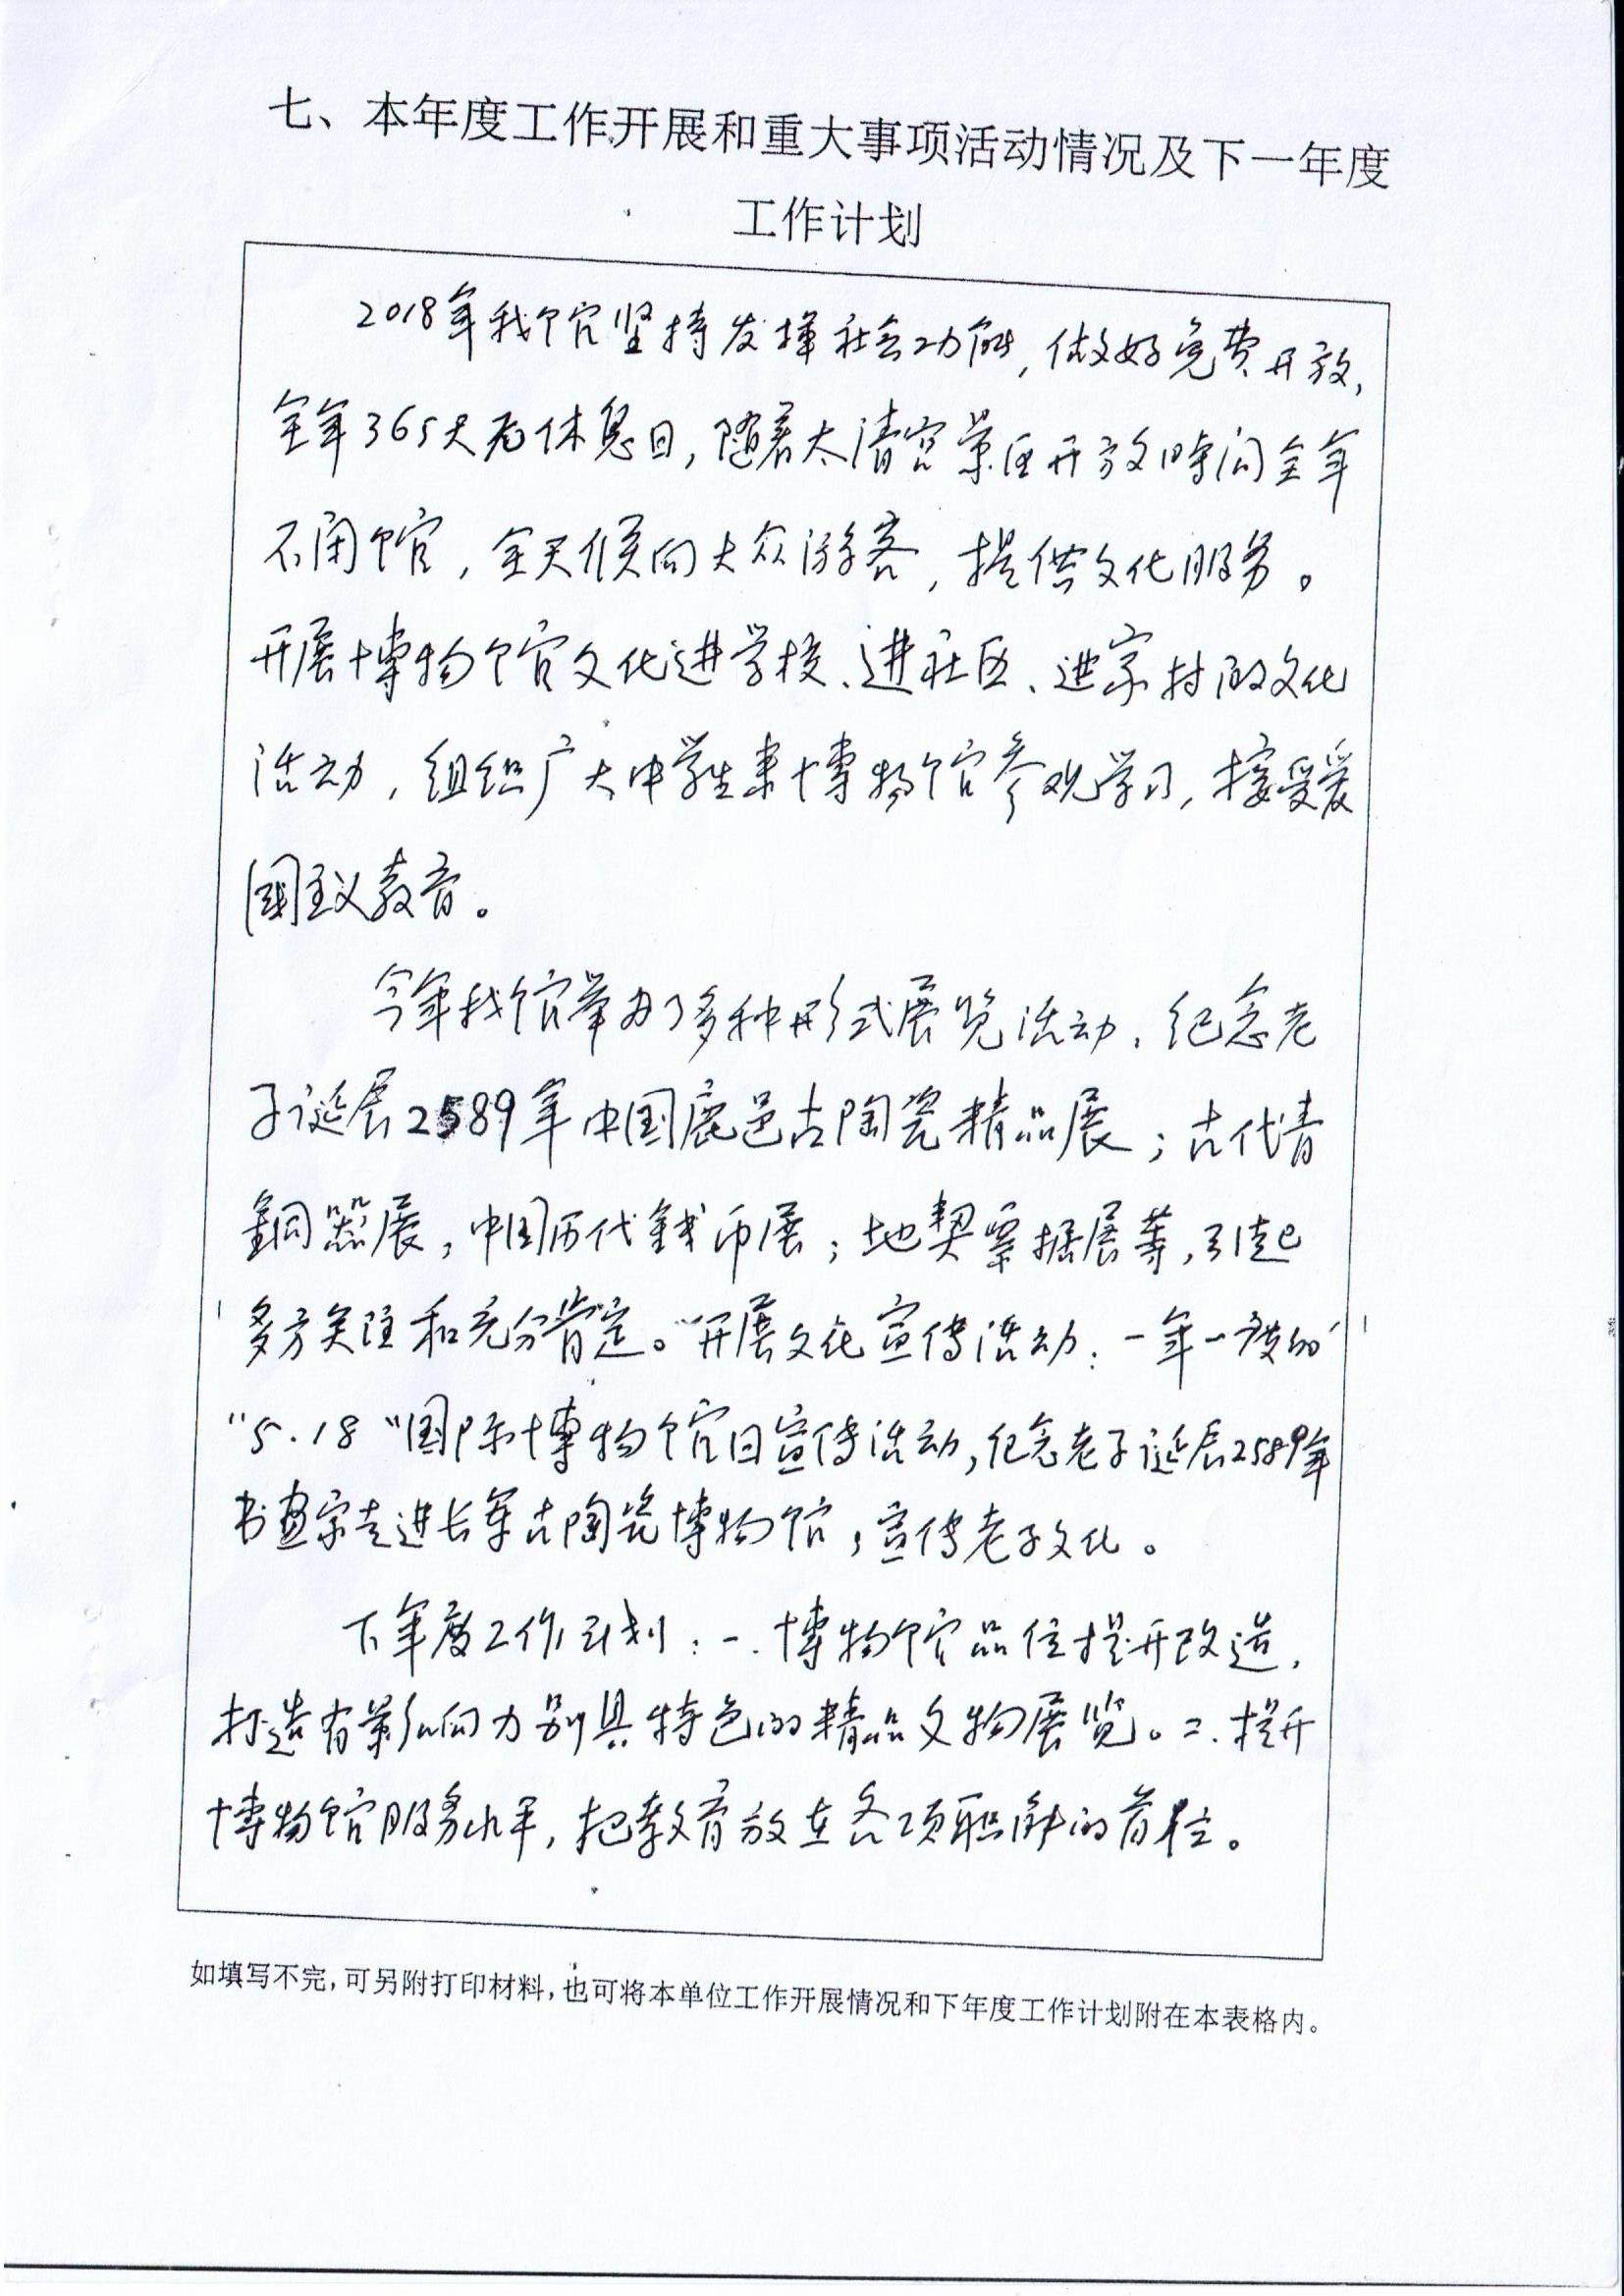 七、本年度工作开展和重大事项活动情况及下一年度
工作计划
2018年我馆坚持发挥社会功能,做好免费开放,
全年365天无休息日,随着太清宫景区开放时间全年
不闭馆,全天候向大众游客,提供文化服务。
开展博物馆文化进学校、进社区、进农村的文化
活动,组织广大中学生来博物馆参观学习,接受爱
国主义教育。
今年我馆举办了多种形式展览活动,纪念老
子诞辰2589年中国鹿邑古陶瓷精品展;古代青
铜器展,中国历代钱币展;地契票据展等,引起
多方关注和充分肯定。开展文化宣传活动:一年一度的
"5.18"国际博物馆日宣传活动,纪念老子诞辰2589年
书画家走进长军古陶瓷博物馆,宣传老子文化。
下年度工作计划:一.博物馆品位提升改造,
打造有影响力别具特色的精品文物展览。二.提升
博物馆服务水平,把教育放在各项职能的首位。
如填写不完,可另附打印材料,也可将本单位工作开展情况和下年度工作计划附在本表格内。